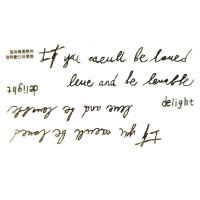 If you would be loved
love and be lovable
delight
delight
love and be lovable
If you would be loved